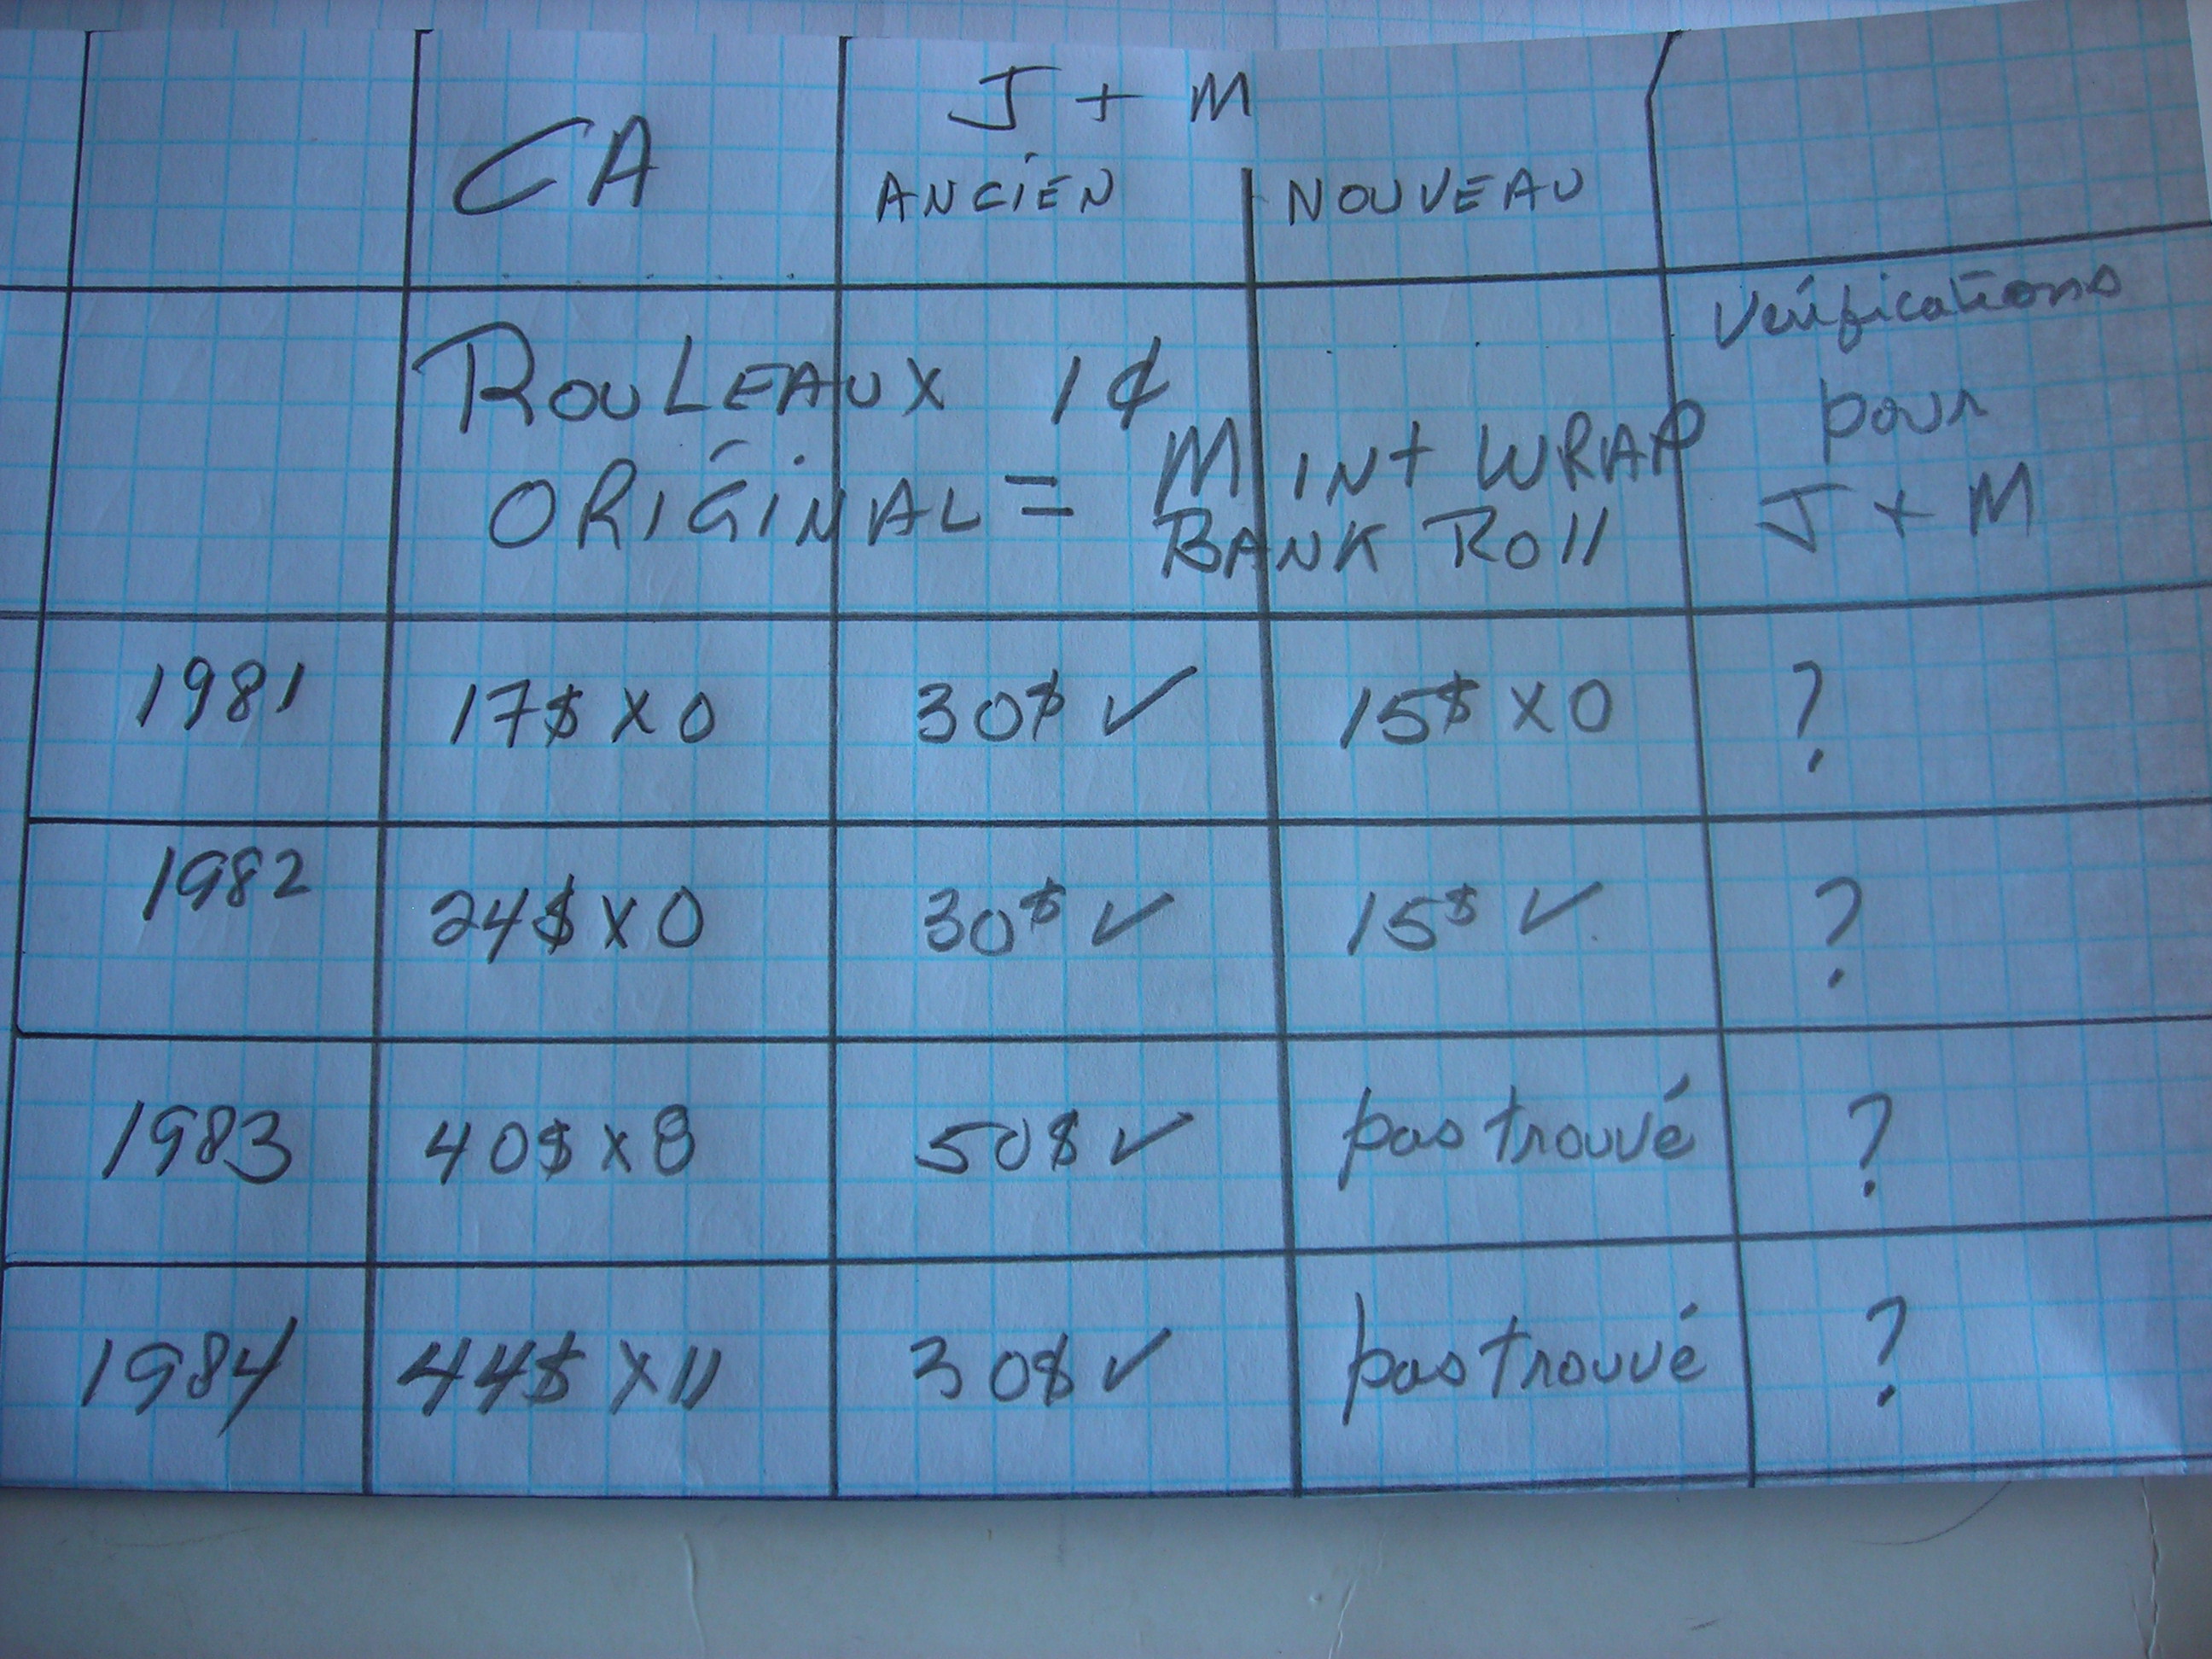 CA J + M
ANCIEN NOUVEAU
ROULEAUX 1¢
ORIGINAL = MINT WRAP
BANK ROLL
Vérifications
pour
J + M
1981 17$ X 0 30$ ✓ 15$ X 0 ?
1982 24$ X 0 30$ ✓ 15$ ✓ ?
1983 40$ X 8 50$ ✓ pas trouvé ?
1984 44$ X 11 30$ ✓ pas trouvé ?